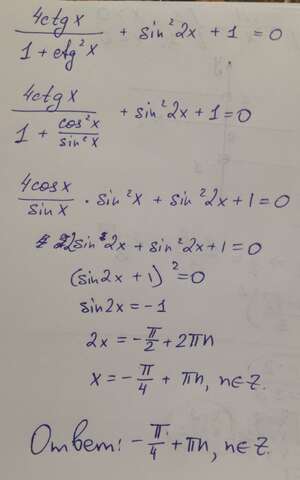 4ctg x / (1 + ctg²x) + sin²2x + 1 = 0
4ctg x / (1 + cos²x/sin²x) + sin²2x + 1 = 0
4cos x / sin x · sin²x + sin²2x + 1 = 0
2sin 2x + sin²2x + 1 = 0
(sin2x + 1)² = 0
sin2x = -1
2x = -π/2 + 2πn
x = -π/4 + πn, n∈Z.
Ответ: -π/4 + πn, n∈Z.